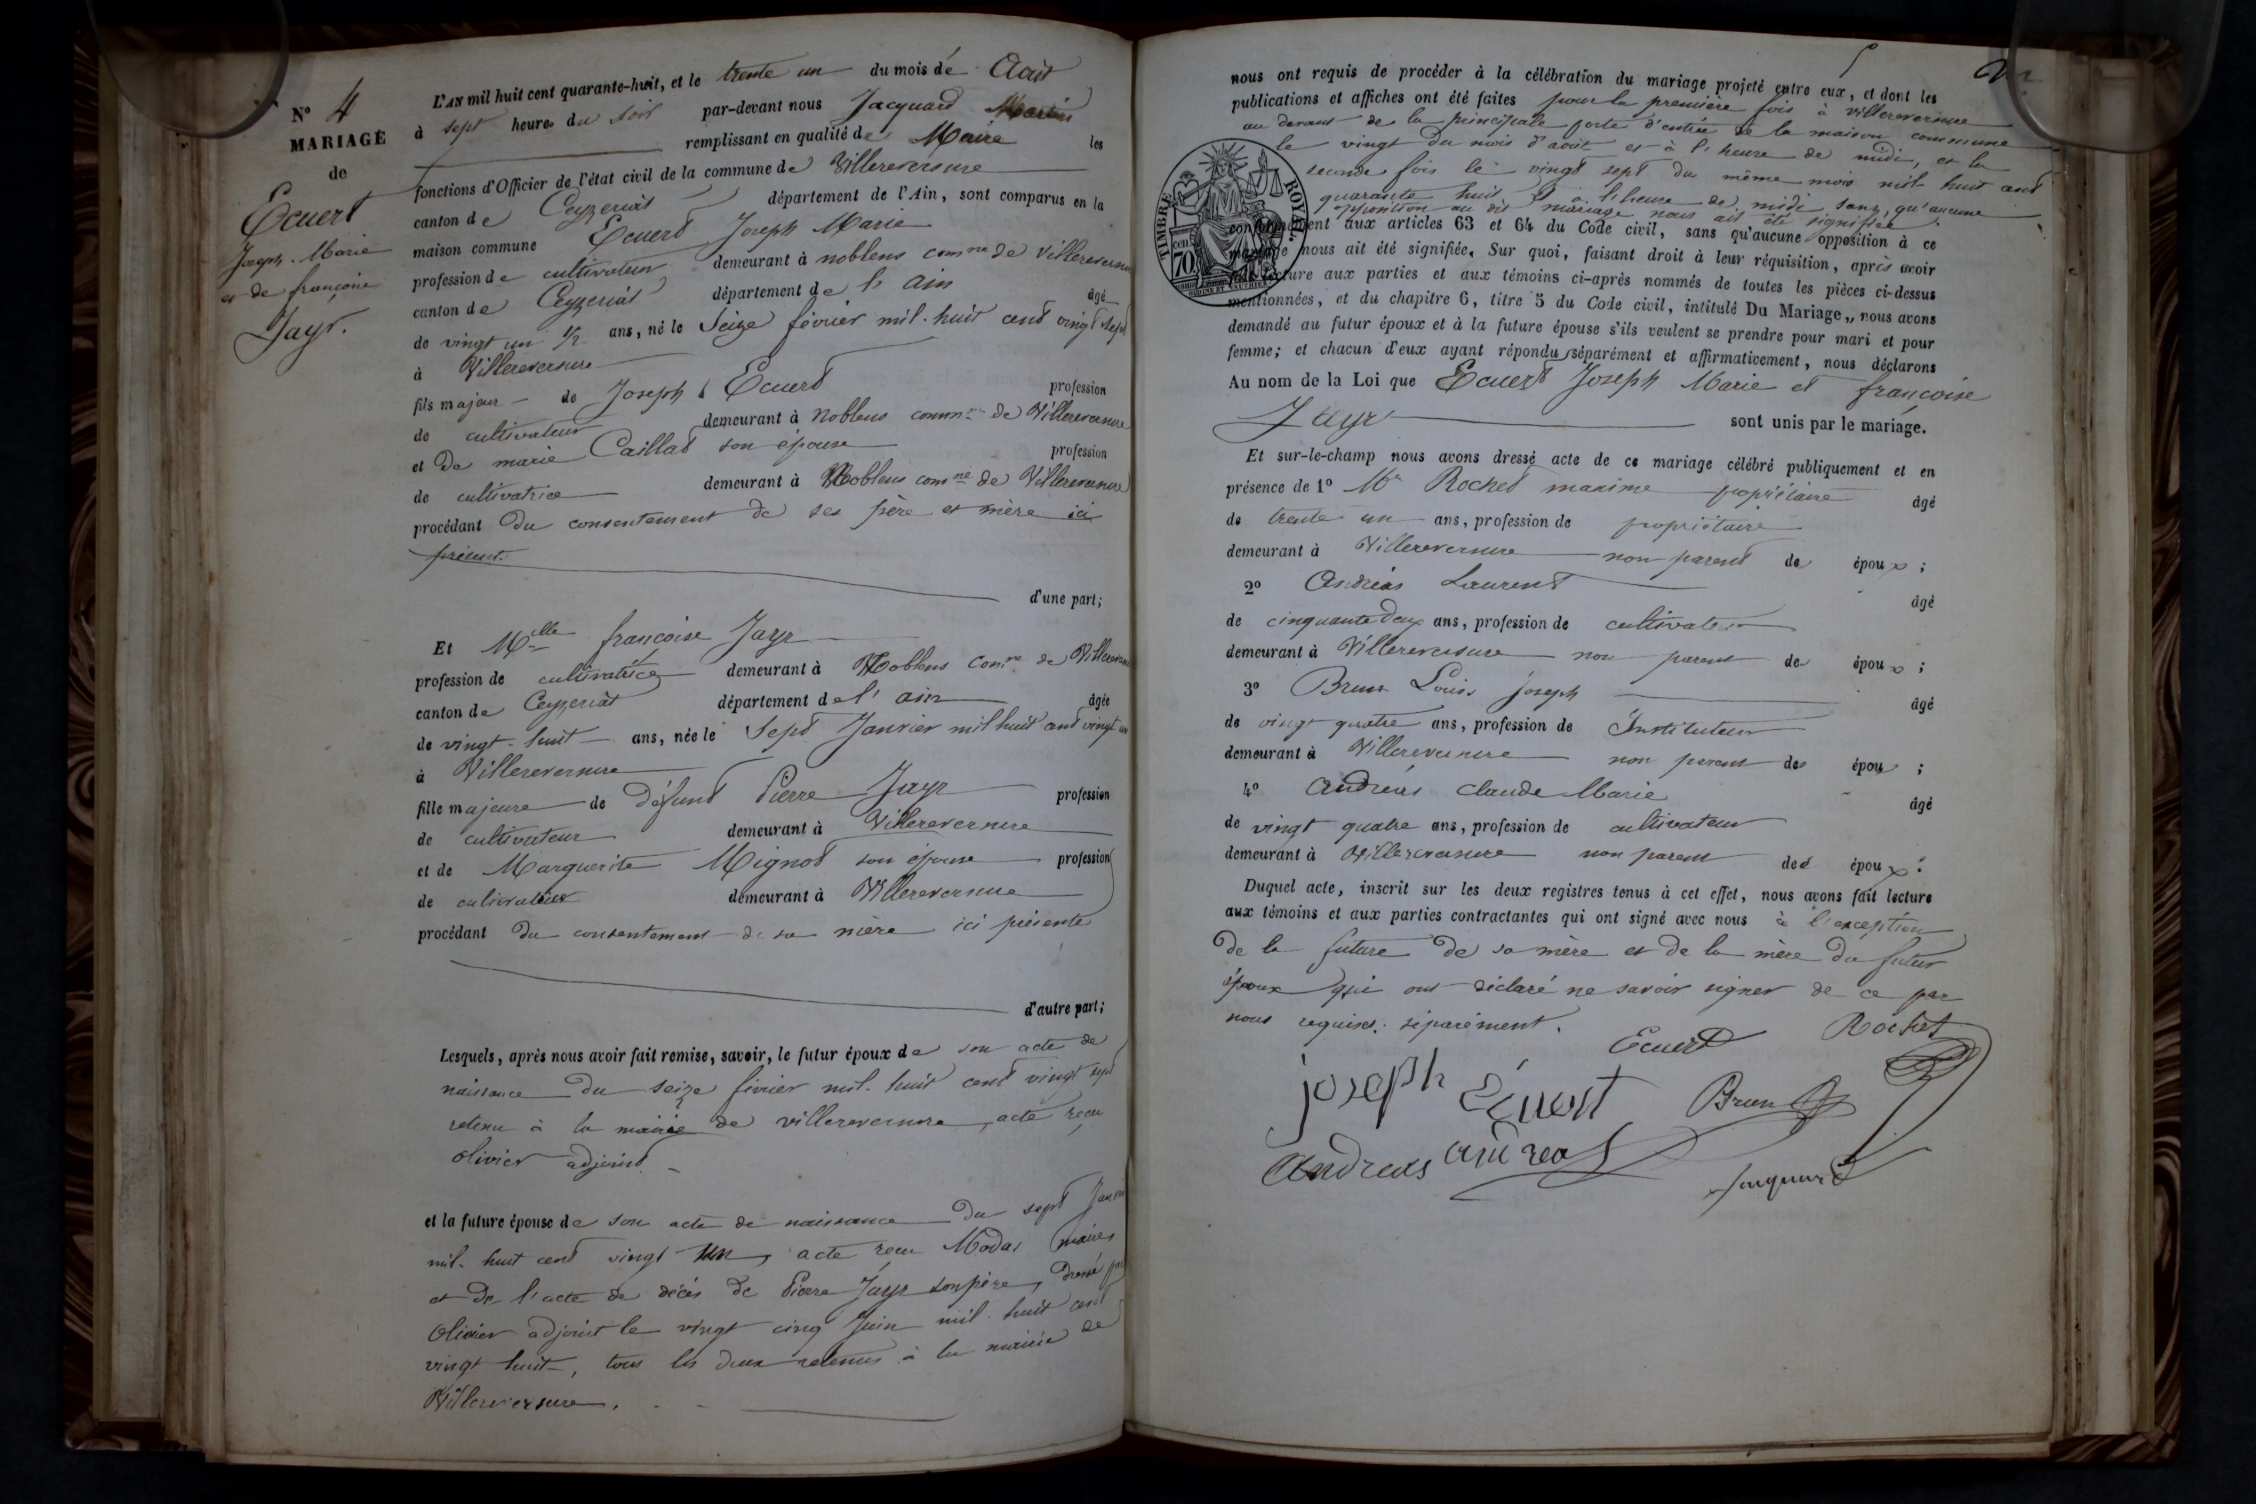 N° 4
MARIAGE
de
Ecuert
Joseph-Marie
et de françoise
Jayr.
L'AN mil huit cent quarante-huit, et le trente un du mois de Août
à sept heures du soir par-devant nous Jacquard Martin
remplissant en qualité de Maire les
fonctions d'Officier de l'état civil de la commune de Villereversure
canton de Ceyzériat département de l'Ain, sont comparus en la
maison commune Ecuert Joseph Marie
profession de cultivateur demeurant à noblens comne de Villereversure
canton de Ceyzériat département de l'Ain âgé
de vingt un 1/2 ans, né le Seize février mil huit cent vingt sept
à Villereversure
fils majeur de Joseph Ecuert profession
de cultivateur demeurant à Noblens comne de Villereversure
et de marie Caillat son épouse profession
de cultivatrice demeurant à Noblens comne de Villereversure
procédant du consentement de ses père et mère ici
présent.
d'une part;
Et Melle françoise Jayr
profession de cultivatrice demeurant à Noblens comne de Villereversure
canton de Ceyzériat département de l'ain âgée
de vingt-huit ans, née le Sept Janvier mil huit cent vingt un
à Villereversure
fille majeure de Défunt Pierre Jayr profession
de cultivateur demeurant à Villereversure
et de Marguerite Mignot son épouse profession
de cultivateur demeurant à Villereversure
procédant du consentement de sa mère ici présente
d'autre part;
Lesquels, après nous avoir fait remise, savoir, le futur époux de son acte de
naissance du seize février mil-huit cent vingt sept
retenu à la mairie de villereversure, acte reçu
olivier adjoint.
et la future épouse de son acte de naissance du sept Janvier
mil-huit cent vingt un, acte reçu Modas maire,
et de l'acte de décès de Pierre Jayr son père, dressé par
Olivier adjoint le vingt cinq Juin mil huit cent
vingt huit, tous les deux retenus à la mairie de
Villereversure.
nous ont requis de procéder à la célébration du mariage projeté entre eux, et dont les
publications et affiches ont été faites pour la première fois à villereversure
au devant de la principale porte d'entrée de la maison commune
le vingt du mois d'août et à l'heure de midi, et la
seconde fois le vingt sept du même mois mil huit cent
quarante huit à l'heure de midi sans, qu'aucune
opposition au dit mariage nous ait été signifiée.
conformément aux articles 63 et 64 du Code civil, sans qu'aucune opposition à ce
mariage nous ait été signifiée. Sur quoi, faisant droit à leur réquisition, après avoir
fait lecture aux parties et aux témoins ci-après nommés de toutes les pièces ci-dessus
mentionnées, et du chapitre 6, titre 5 du Code civil, intitulé Du Mariage,, nous avons
demandé au futur époux et à la future épouse s'ils veulent se prendre pour mari et pour
femme; et chacun d'eux ayant répondu séparément et affirmativement, nous déclarons
Au nom de la Loi que Ecuert Joseph Marie et françoise
Jayr sont unis par le mariage.
Et sur-le-champ nous avons dressé acte de ce mariage célébré publiquement et en
présence de 1° Mr Rochet maxime propriétaire âgé
de trente un ans, profession de propriétaire
demeurant à Villereversure non parent des époux;
2° Andréas Laurent âgé
de cinquante deux ans, profession de cultivateur
demeurant à Villereversure non parent des époux;
3° Brun Louis Joseph âgé
de vingt quatre ans, profession de Instituteur
demeurant à Villereversure non parent des époux;
4° Andréas Claude Marie âgé
de vingt quatre ans, profession de cultivateur
demeurant à Villereversure non parent des époux:
Duquel acte, inscrit sur les deux registres tenus à cet effet, nous avons fait lecture
aux témoins et aux parties contractantes qui ont signé avec nous à l'exception
de la future de sa mère et de la mère du futur
époux qui ont déclaré ne savoir signer de ce par
nous requises séparément.
Ecuert Rochet
joseph Ecuert Brun
Andreas andreas
Jacquard
TIMBRE ROYAL
70 cen